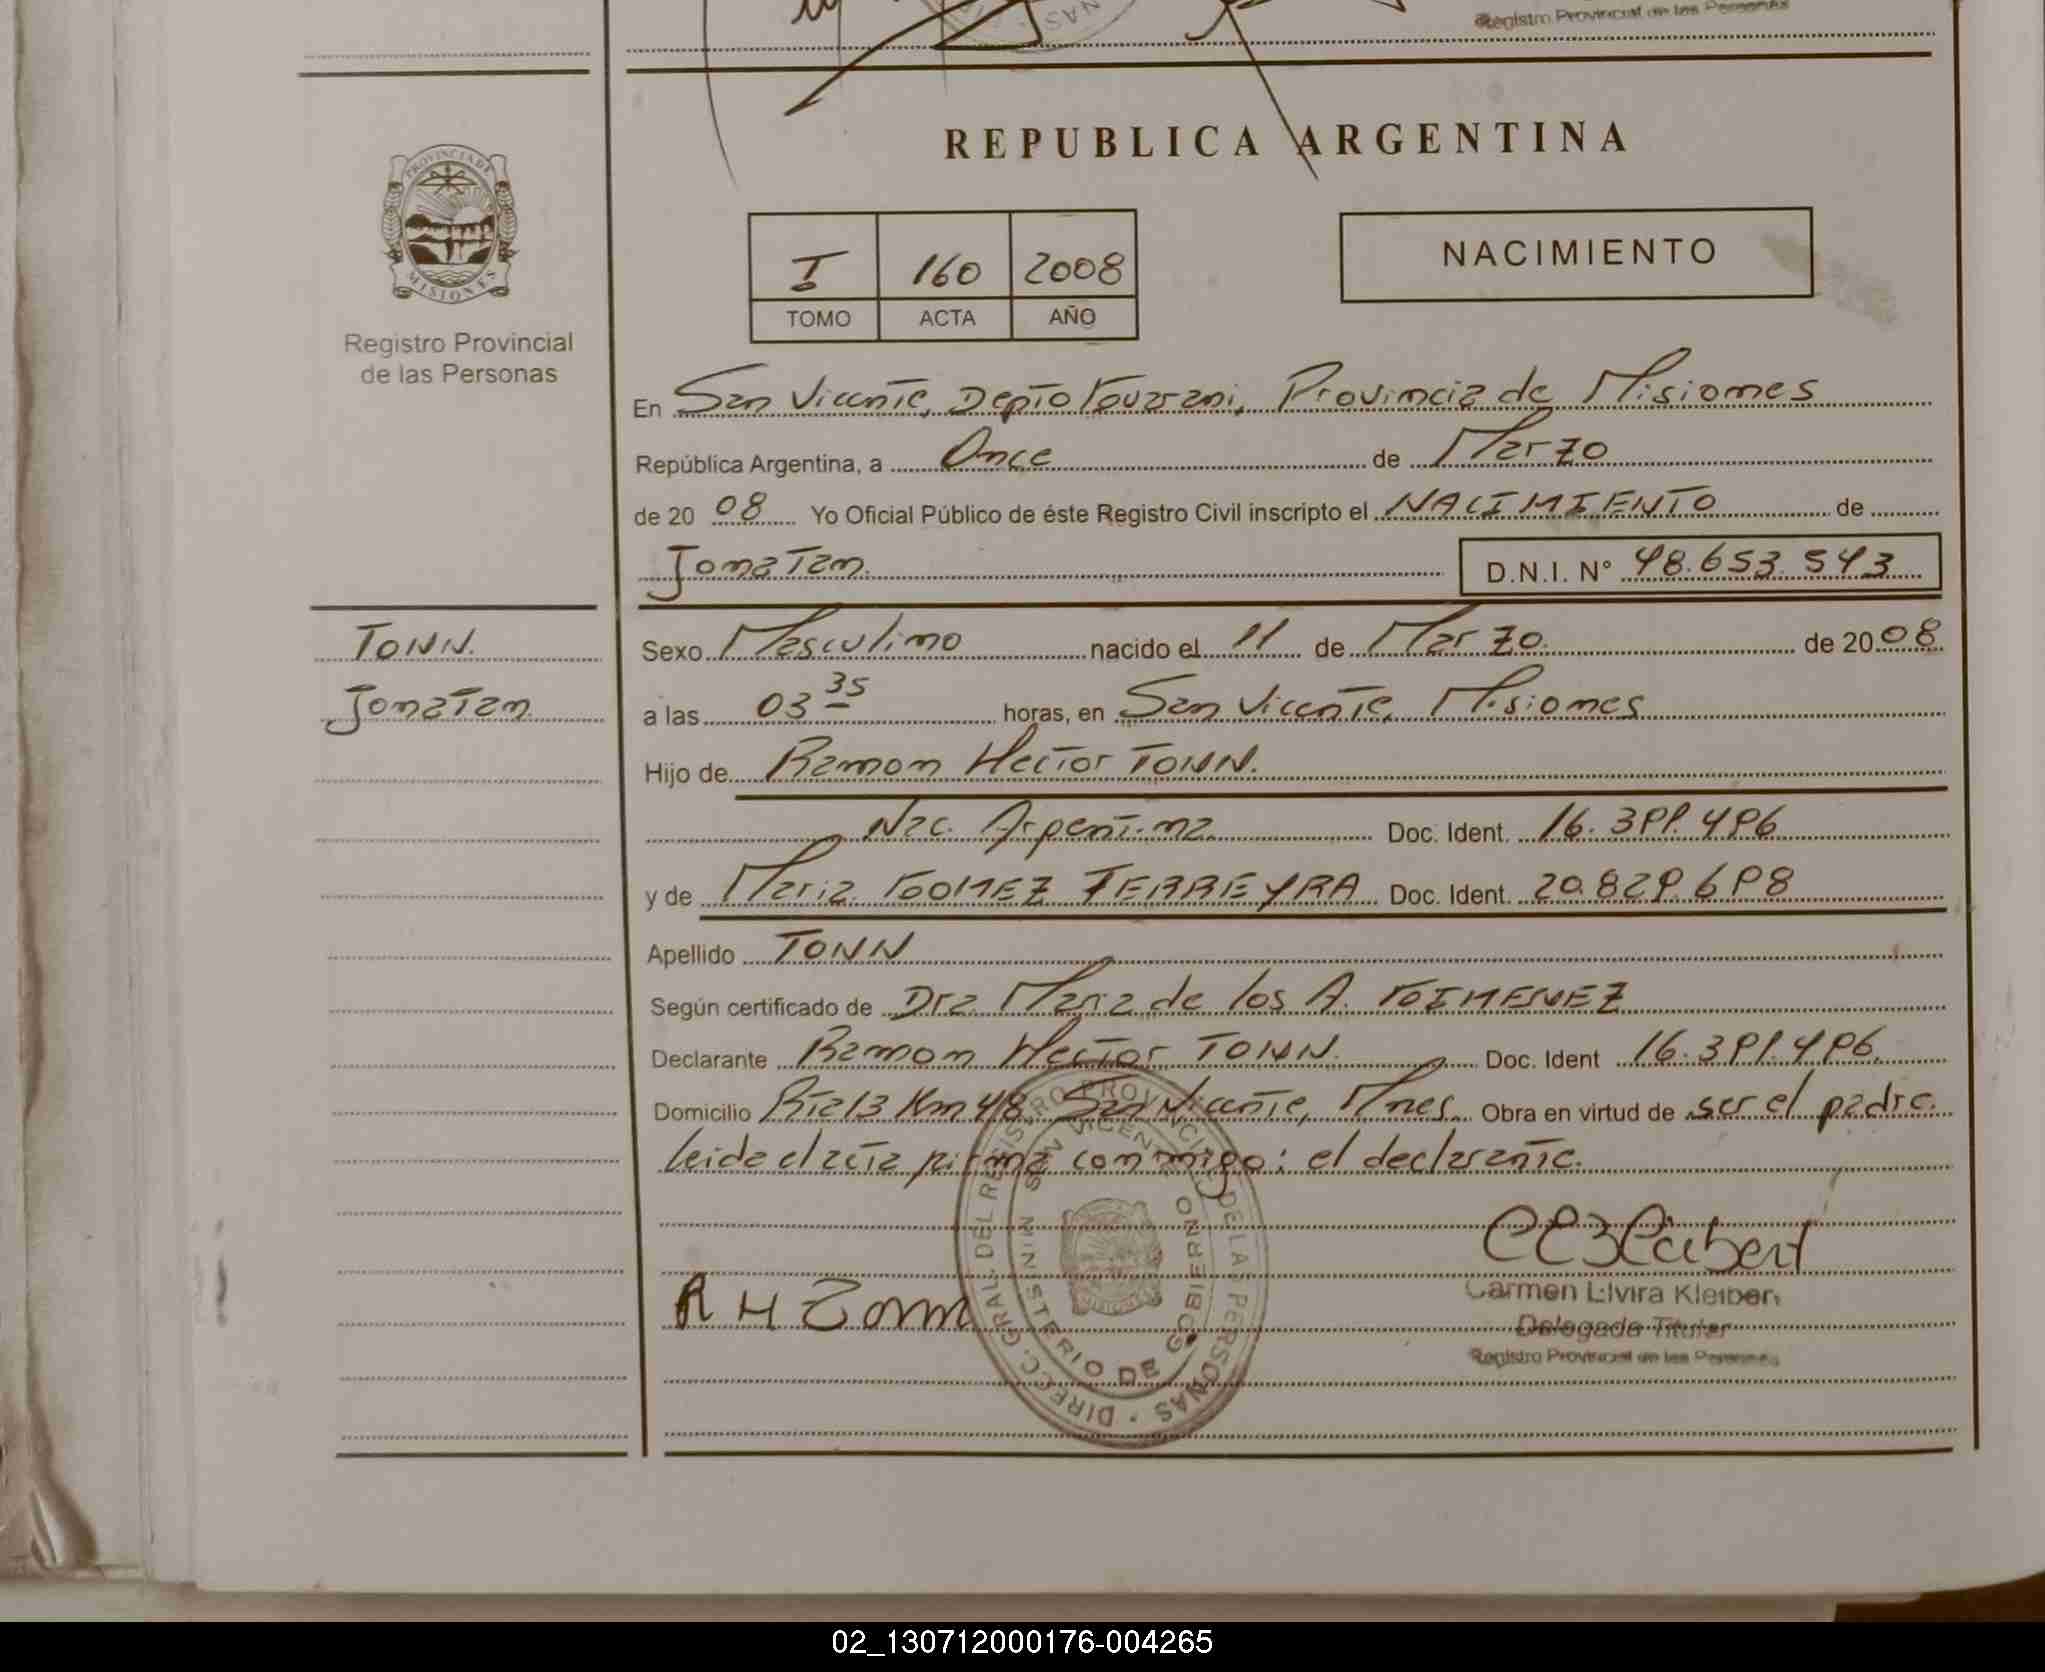 Registro Provincial de las Personas
REPUBLICA ARGENTINA
PROVINCIA DE
MISIONES
Registro Provincial
de las Personas
I 160 2008
TOMO ACTA AÑO
NACIMIENTO
En San Vicente, Depto Guarani, Provincia de Misiones
República Argentina, a Once de Marzo
de 20 08 Yo Oficial Público de éste Registro Civil inscripto el NACIMIENTO de
Jonatan. D.N.I. N° 48.653.543
TONN.
Jonatan
Sexo Masculino nacido el 11 de Marzo. de 20 08
a las 03 35 horas, en San Vicente, Misiones
Hijo de Ramon Hector TONN.
Nac. Argentina Doc. Ident. 16.391.496
y de Maria GOMEZ FERREYRA Doc. Ident. 20.829.698
Apellido TONN
Según certificado de Dra. Maria de los A. GIMENEZ
Declarante Ramon Hector TONN. Doc. Ident 16.391.496
Domicilio Rta 13 Km 48 San Vicente, Mnes. Obra en virtud de ser el padre.
leida el acta firma conmigo: el declarante.
R H Tonn
DIRECC. GRAL. DEL REGISTRO PROVINCIAL DE LAS PERSONAS
SAN VICENTE
MINISTERIO DE GOBIERNO
Carmen Elvira Kleibert
Delegada Titular
Registro Provincial de las Personas
02_130712000176-004265